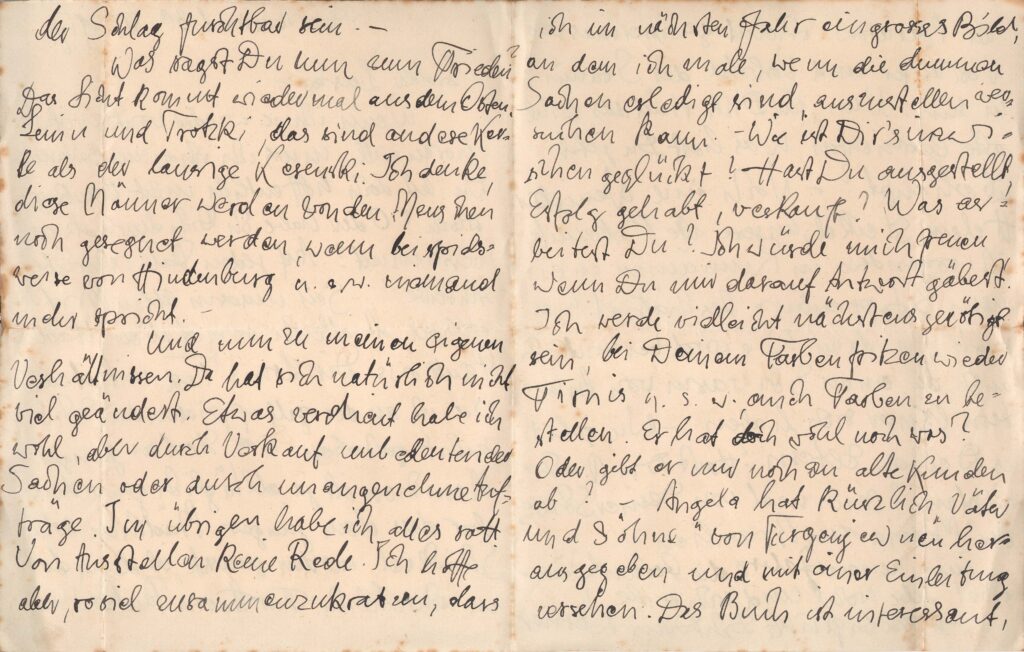 der Schlag furchtbar sein. –
Was sagst Du nun zum Frieden?
Das Licht kommt wieder mal aus dem Osten.
Lenin und Trotzki, das sind andere Ker-
le als der lausige Kerenski. Ich denke,
diese Männer werden von den Menschen
noch gesegnet werden, wenn beispiels-
weise von Hindenburg u. s. w. niemand
mehr spricht. –
Und nun zu meinen eigenen
Verhältnissen. Da hat sich natürlich nicht
viel geändert. Etwas verdient habe ich
wohl, aber durch Verkauf unbedeutender
Sachen oder durch unangenehme Auf-
träge. Im übrigen habe ich alles satt.
Von Ausstellen keine Rede. Ich hoffe
aber, soviel zusammenzukratzen, dass
ich im nächsten Jahr ein grosses Bild,
an dem ich male, wenn die dummen
Sachen erledigt sind, auszustellen ver-
suchen kann. – Wie ist Dir's inzwi-
schen geglückt? Hast Du ausgestellt,
Erfolg gehabt, verkauft? Was ar-
beitest Du? Ich würde mich freuen
wenn Du mir darauf Antwort gäbest.
Ich werde vielleicht nächstens genötigt
sein, bei Deinem Farbenfritzen wieder
Firnis u. s. w., auch Farben zu be-
stellen. Er hat doch wohl noch was?
Oder gibt er nur noch an alte Kunden
ab? – Angela hat kürzlich „Väter
und Söhne" von Turgenjew neu her-
ausgegeben und mit einer Einleitung
versehen. Das Buch ist interessant,